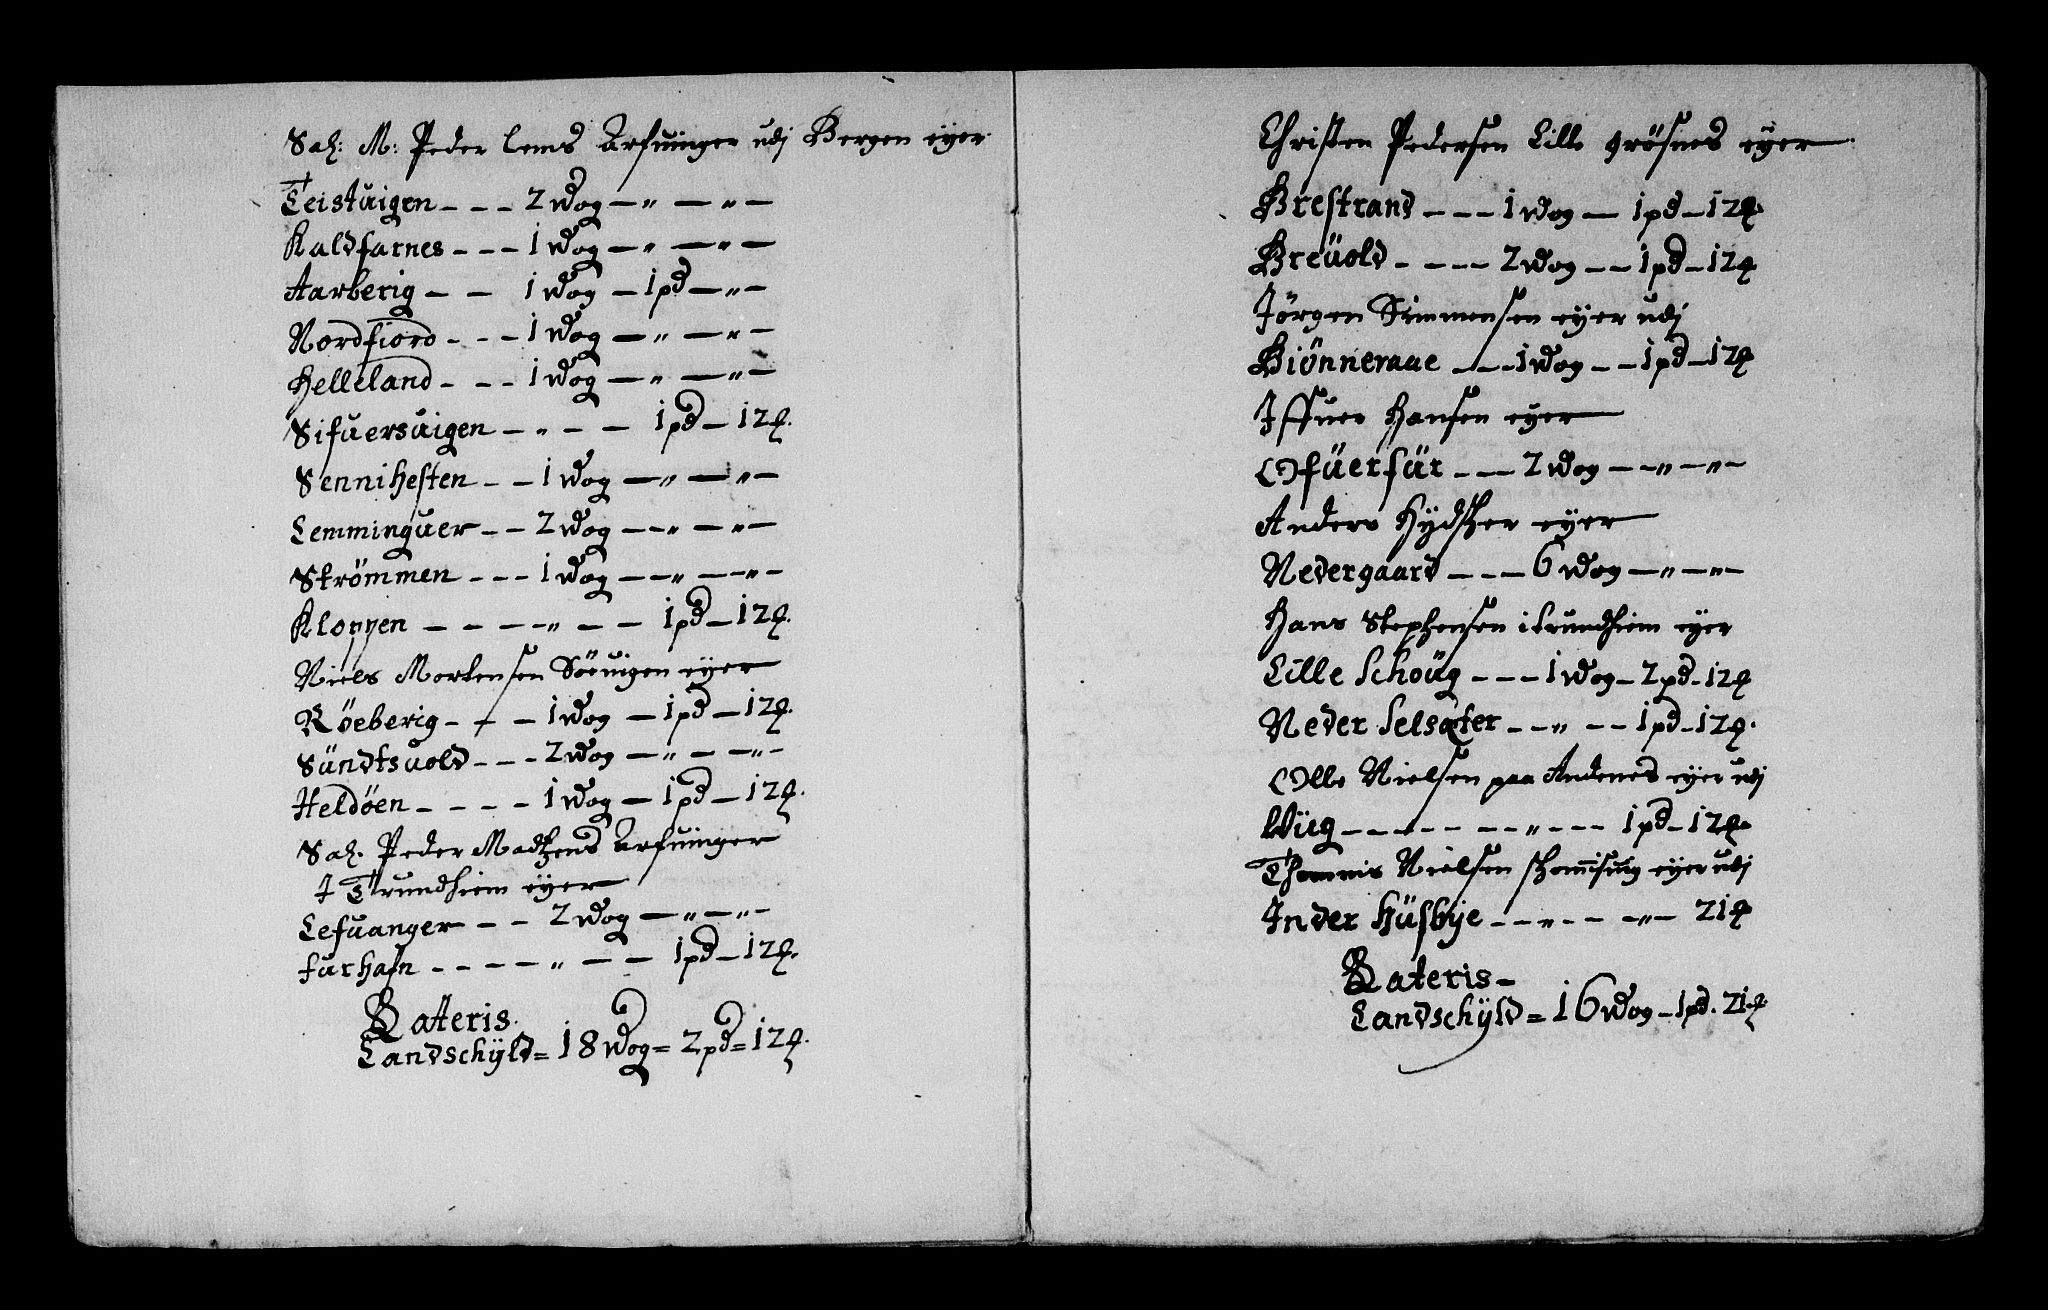 Sal: M: Peder Lems Arfuinger udj Bergen eyer
Teistuigen - - - 2 wog - „ - „ -
Kaldfarnes - - - 1 wog - „ - „ -
Aarberig - - 1 wog - 1 pd - „ -
Nordfiord - - - 1 wog - „ - „ -
Helleland - - - 1 wog - „ - „ -
Sifuersuigen - „ - - 1 pd - 12 ꝑ.
Sennihesten - - 1 wog - „ - „ -
Lemminguer - - 2 wog - - „ - „ -
Strömmen - - - 1 wog - - „ - - „ -
Kloppen - - - - „ - - 1 pd - 12 ꝑ.
Niels Mortensen Söeuigen eyer
Röeberig - - - 1 wog - 1 pd - 12 ꝑ.
Sündtsuold - - - 2 wog - „ - - „ -
Heldöen - - - - 1 wog - 1 pd - 12 ꝑ.
Sal. Peder Madtzens Arfuinger
J Trundhiem eyer
Lefuanger - - 2 wog - „ - „ -
furhafn - - - - „ - - 1 pd - 12 ꝑ.
Lateris
Landschÿld = 18 wog = 2 pd = 12 ꝑ.
Christen Pedersen Lille grösnes eyer
Brestrand - - - 1 wog - 1 pd - 12 ꝑ.
Breüold - - - - 2 wog - - 1 pd - 12 ꝑ
Jörgen Simmensen eyer udj
Biönneraae - - - 1 wog - - 1 pd - 12 ꝑ
Iffuer Hansen eyer
Ofüerfür - - 2 wog - - „ - „ -
Anders eyer
Nedergaard - - - 6 wog - „ - „ -
Hans Stephensen i trundhiem eyer
Lille Schoüg - - - 1 wog - 2 pd - 12 ꝑ
Neder Selsæter - - „ - - 1 pd - 12 ꝑ.
Olle Nielsen paa Andenes eyer udj
Wüg - - - - - - - „ - - - 1 pd - 12 ꝑ.
Thommis Nielsen eyer udj
Inder Hüsbÿe - - „ - - - „ - 21 ꝑ
Lateris -
Landschÿld = 16 wog - 1 pd. 21 ꝑ.